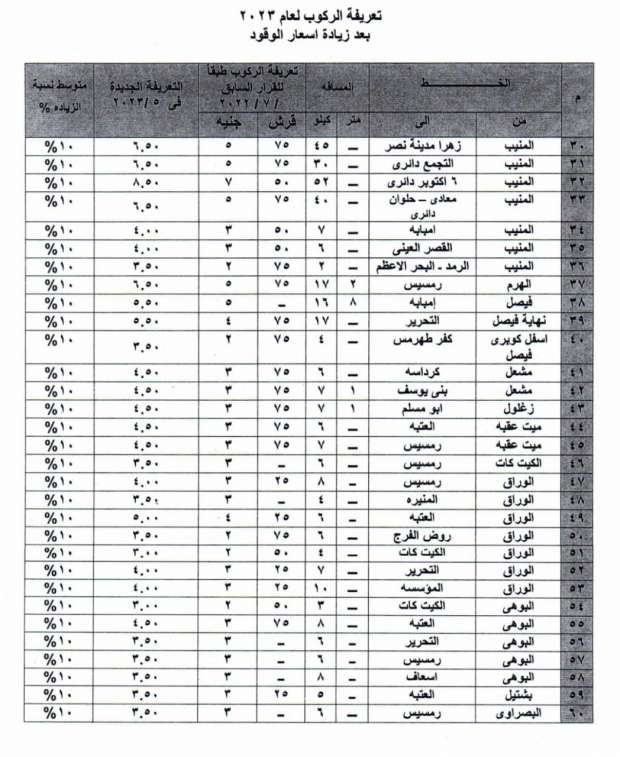 تعريفة الركوب لعام ٢٠٢٣
بعد زيادة اسعار الوقود
م الخط المسافه تعريفة الركوب طبقا للقرار السابق /٧/٢٠٢٢ التعريفة الجديدة فى ٢٠٢٣/٥ متوسط نسبة الزياده %
من الى متر كيلو قرش جنيه
٣٠ المنيب زهرا مدينة نصر ـ ٤٥ ٧٥ ٥ ٦,٥٠ ١٠%
٣١ المنيب التجمع دائرى ـ ٣٠ ٧٥ ٥ ٦,٥٠ ١٠%
٣٢ المنيب ٦ اكتوبر دائرى ـ ٥٢ ٥٠ ٧ ٨,٥٠ ١٠%
٣٣ المنيب معادى – حلوان دائرى ـ ٤٠ ٧٥ ٥ ٦,٥٠ ١٠%
٣٤ المنيب امبابه ـ ٧ ٥٠ ٣ ٤,٠٠ ١٠%
٣٥ المنيب القصر العينى ـ ٦ ٥٠ ٣ ٤,٠٠ ١٠%
٣٦ المنيب الرمد ـ البحر الاعظم ـ ٢ ٧٥ ٢ ٣,٥٠ ١٠%
٣٧ الهرم رمسيس ٢ ١٧ ٧٥ ٥ ٦,٥٠ ١٠%
٣٨ فيصل إمبابه ٨ ١٦ ـ ٥ ٥,٥٠ ١٠%
٣٩ نهاية فيصل التحرير ـ ١٧ ٧٥ ٤ ٥,٥٠ ١٠%
٤٠ اسفل كوبرى فيصل كفر طهرمس ـ ٤ ٧٥ ٢ ٣,٥٠ ١٠%
٤١ مشعل كرداسه ـ ٦ ٧٥ ٣ ٤,٥٠ ١٠%
٤٢ مشعل بنى يوسف ١ ٧ ٧٥ ٣ ٤,٥٠ ١٠%
٤٣ زغلول ابو مسلم ١ ٧ ٧٥ ٣ ٤,٥٠ ١٠%
٤٤ ميت عقبه العتبه ـ ٦ ٧٥ ٣ ٤,٥٠ ١٠%
٤٥ ميت عقبه رمسيس ـ ٧ ٧٥ ٣ ٤,٥٠ ١٠%
٤٦ الكيت كات رمسيس ـ ٦ ـ ٣ ٣,٥٠ ١٠%
٤٧ الوراق رمسيس ـ ٨ ٢٥ ٣ ٤,٠٠ ١٠%
٤٨ الوراق المنيره ـ ٤ ـ ٣ ٣,٥٠ ١٠%
٤٩ الوراق العتبه ـ ٦ ٢٥ ٤ ٥,٠٠ ١٠%
٥٠ الوراق روض الفرج ـ ٦ ٧٥ ٢ ٣,٥٠ ١٠%
٥١ الوراق الكيت كات ـ ٤ ٥٠ ٢ ٣,٠٠ ١٠%
٥٢ الوراق التحرير ـ ٧ ٢٥ ٣ ٤,٠٠ ١٠%
٥٣ الوراق المؤسسه ـ ١٠ ٢٥ ٣ ٤,٠٠ ١٠%
٥٤ البوهى الكيت كات ـ ٣ ٥٠ ٢ ٣,٠٠ ١٠%
٥٥ البوهى العتبه ـ ٨ ٧٥ ٣ ٤,٥٠ ١٠%
٥٦ البوهى التحرير ـ ٦ ـ ٣ ٣,٥٠ ١٠%
٥٧ البوهى رمسيس ـ ٦ ـ ٣ ٣,٥٠ ١٠%
٥٨ البوهى اسعاف ـ ٨ ـ ٣ ٣,٥٠ ١٠%
٥٩ بشتيل العتبه ـ ٥ ٢٥ ٣ ٣,٥٠ ١٠%
٦٠ البصراوى رمسيس ـ ٦ ـ ٣ ٣,٥٠ ١٠%